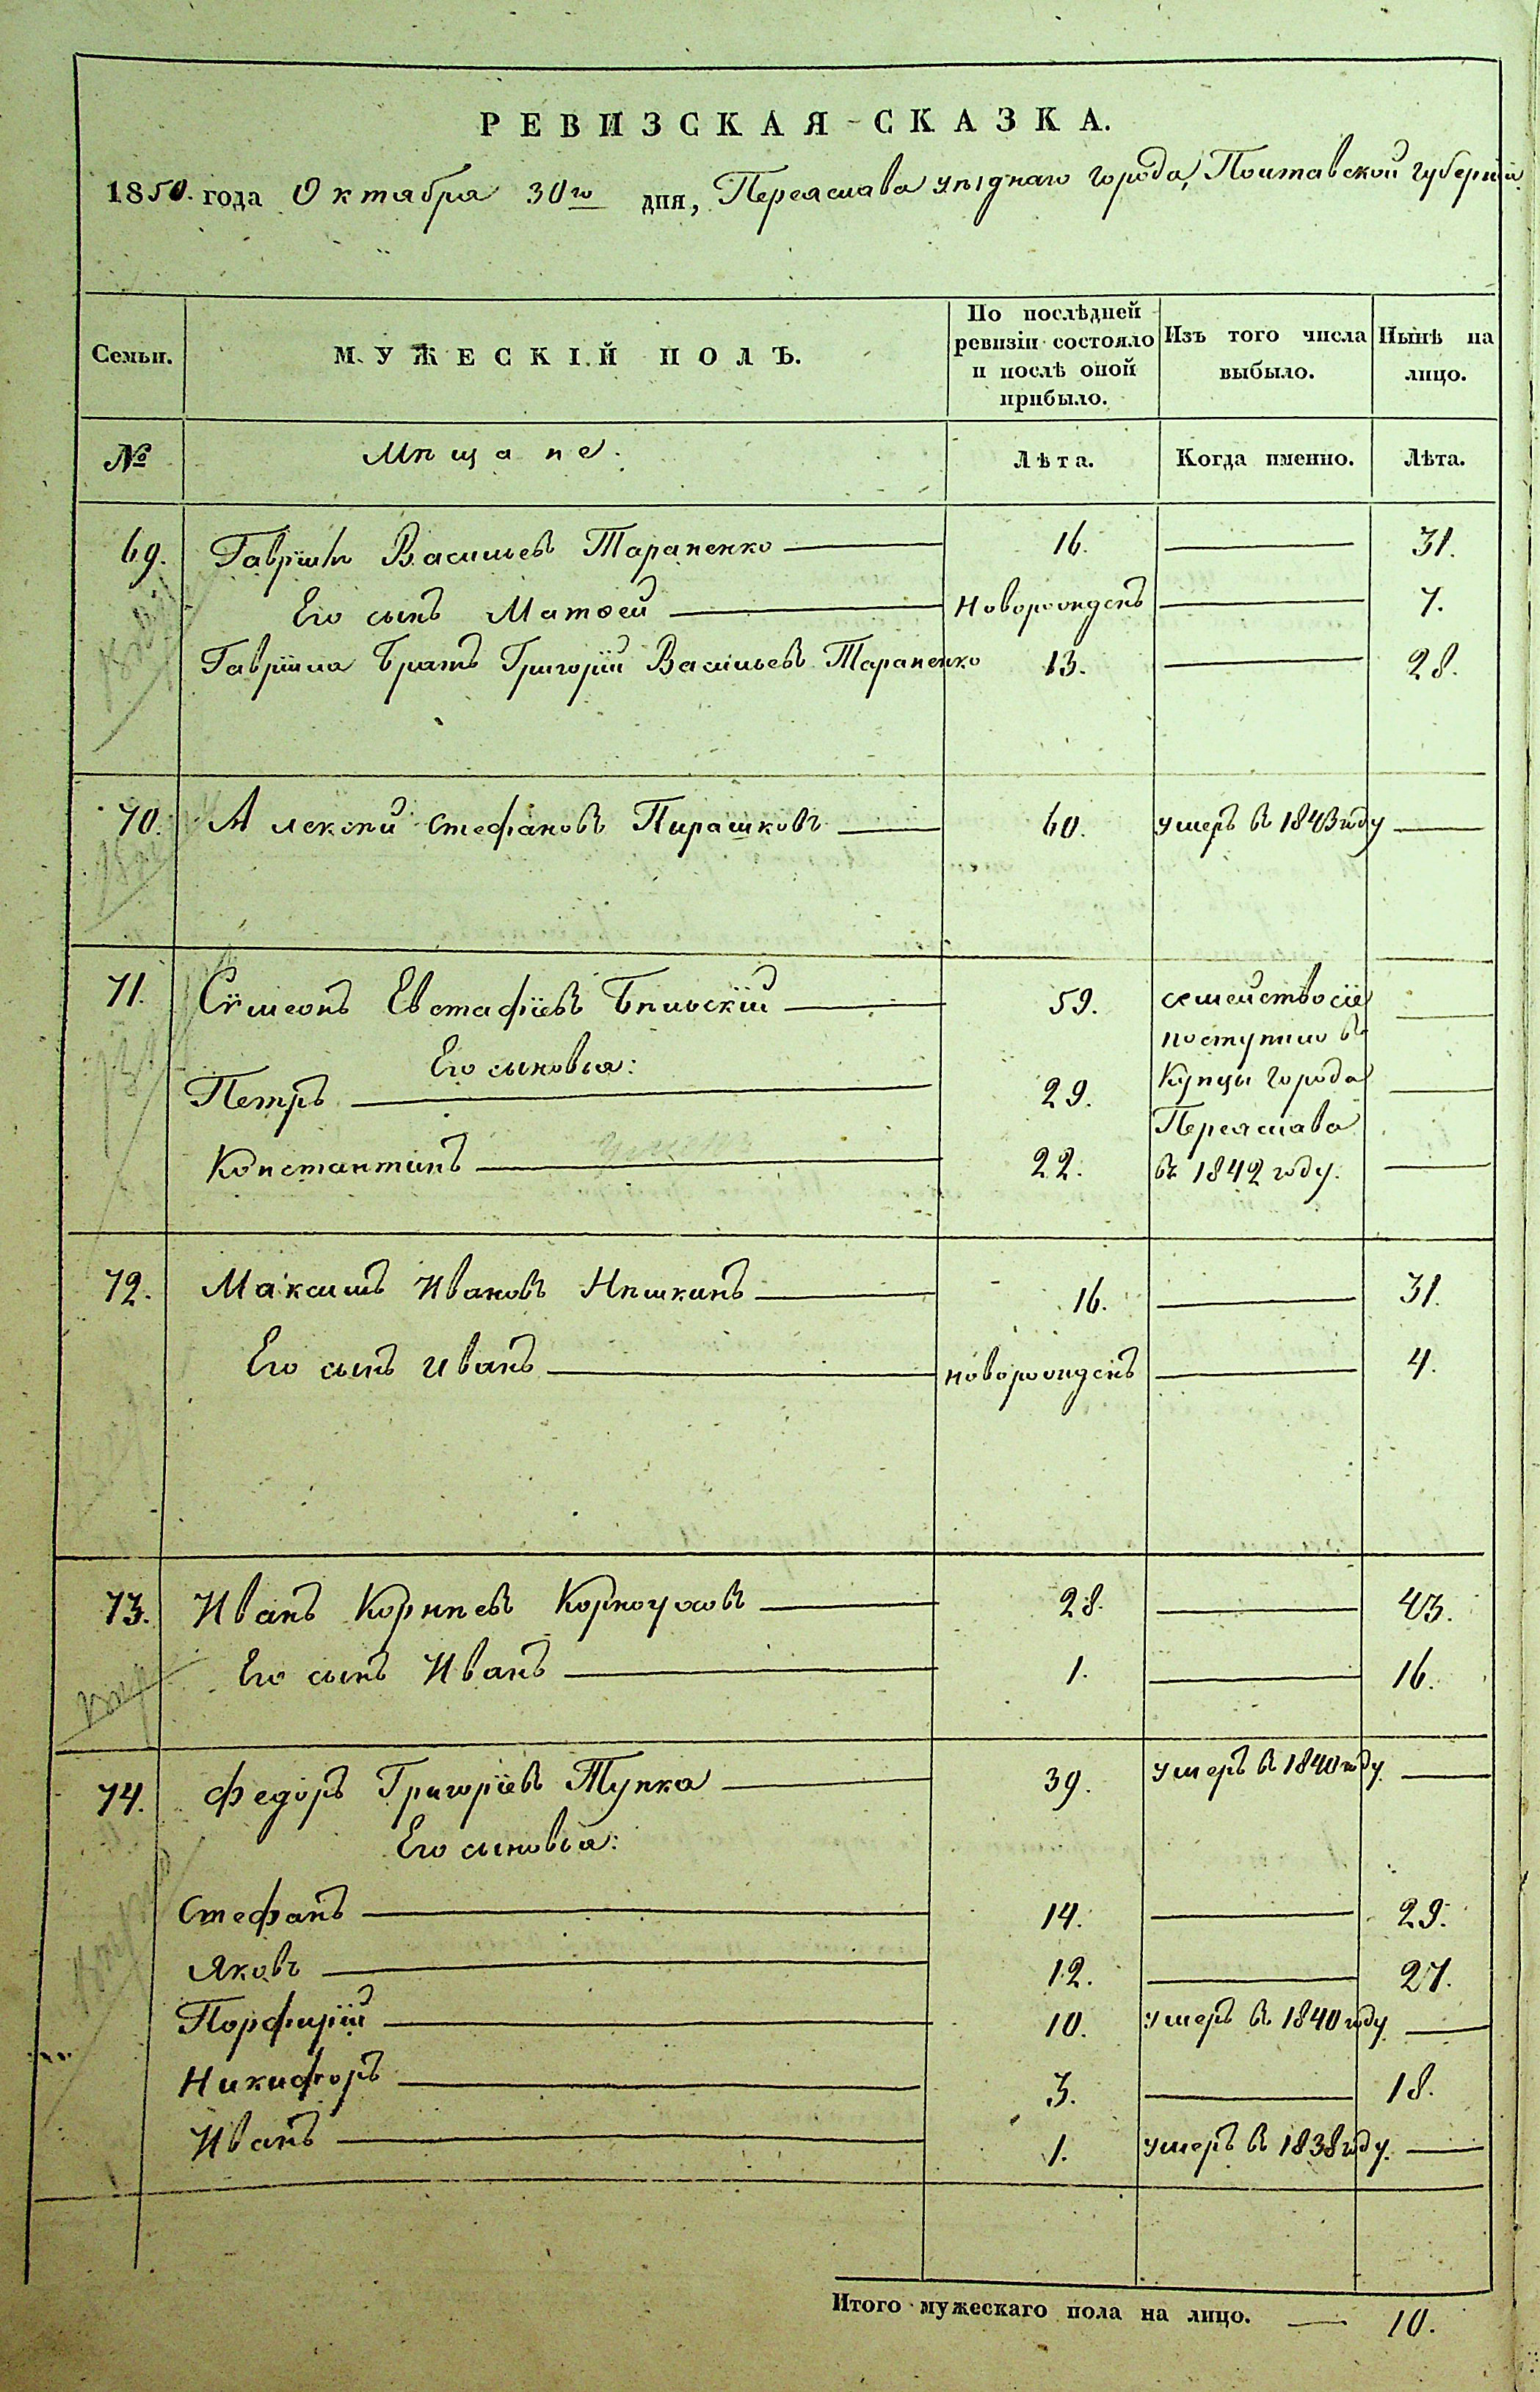 РЕВИЗСКАЯ СКАЗКА.
1850. года Октября 30го дня, Переяслава уѣзднаго города, Полтавской губерніи.
Семьи. МУЖЕСКІЙ ПОЛЪ. По послѣдней ревизіи состояло и послѣ оной прибыло. Изъ того числа выбыло. Нынѣ на лицо.
№ Мѣщане. Лѣта. Когда именно. Лѣта.
69. Гавріилъ Васильевъ Тараненко 16. 31.
Его сынъ Матѳей новорожденъ 7.
Гавріила братъ Григорій Васильевъ Тараненко 13. 28.
70. Алексѣй Стефановъ Пирашковъ 60. умеръ въ 1843 году
71. Сѵмеонъ Евстафіевъ Бѣльскій 59. семейство сіе
поступило въ
Его сыновья:
Петръ 29. купцы города
Переяслава
Константинъ 22. въ 1842 году.
72. Максимъ Ивановъ Нѣшкинъ 16. 31.
Его сынъ Иванъ новорожденъ 4.
73. Иванъ Корнѣевъ Корноуховъ 28. 43.
Его сынъ Иванъ 1. 16.
74. Федоръ Григоріевъ Тупка 39. умеръ въ 1840 году.
Его сыновья:
Стефанъ 14. 29.
Яковъ 12. 27.
Порфирій 10. умеръ въ 1840 году.
Никифоръ 3. 18.
Иванъ 1. умеръ въ 1838 году.
Итого мужескаго пола на лицо. 10.